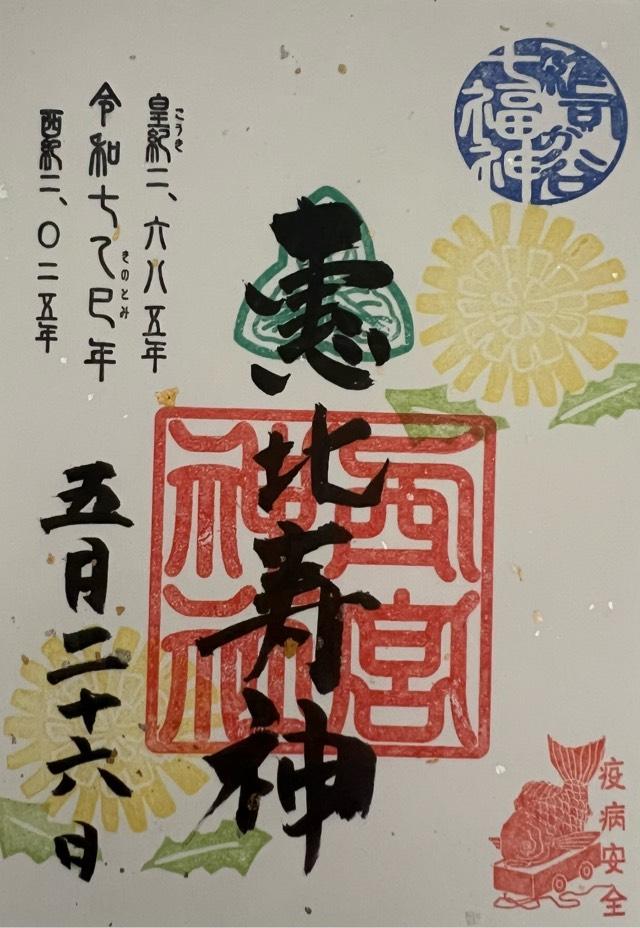 雑司が谷
七福神
恵比寿神
西宮
神社
皇紀二、六八五年
こうき
令和七乙巳年
きのとみ
西紀二、〇二五年
五月二十六日
疫病安全